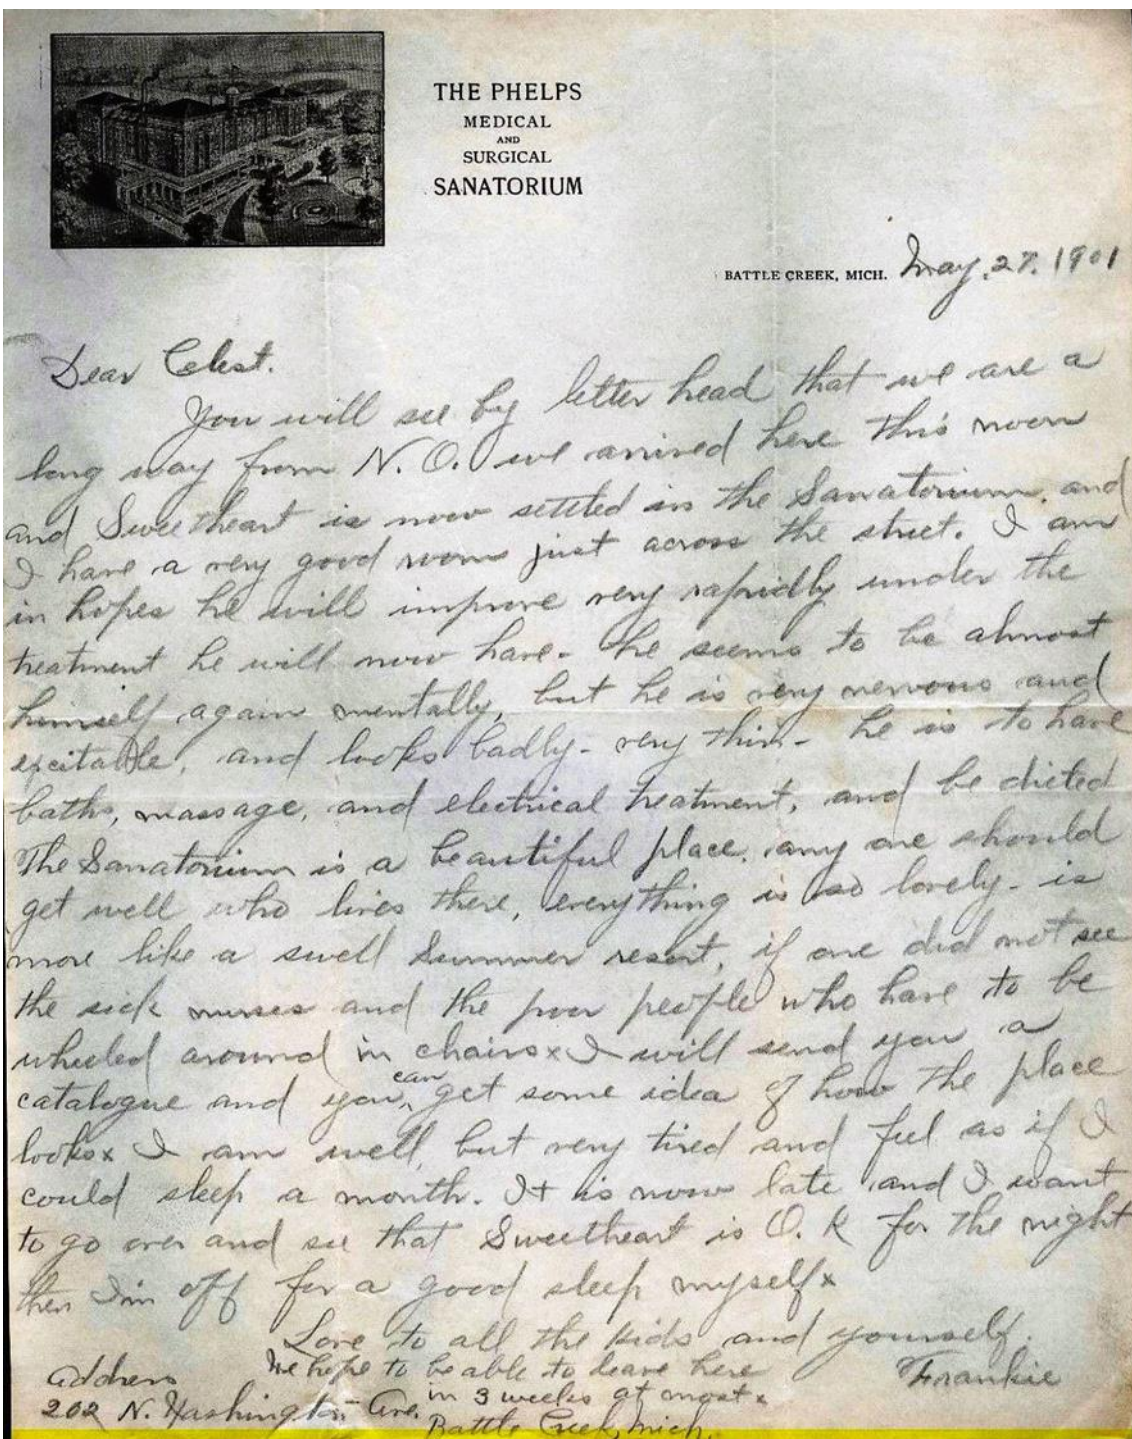 THE PHELPS
MEDICAL
AND
SURGICAL
SANATORIUM
BATTLE CREEK, MICH. May. 27. 1901
Dear Celest.
You will see by letter head that we are a
long way from N. O. we arrived here this noon
and Sweetheart is now settled in the Sanatorium. and
I have a very good room just across the street. I am
in hopes he will improve very rapidly under the
treatment he will now have - he seems to be almost
himself again mentally, but he is very nervous and
excitable, and looks badly - very thin - he is to have
baths, massage, and electrical treatment, and be dieted
The Sanatorium is a beautiful place. any one should
get well who lives there, everything is so lovely - is
more like a swell Summer resort, if one did not see
the sick nurses and the poor people who have to be
wheeled around in chairs x I will send you a
catalogue and you can get some idea of how the place
looks x I am well, but very tired and feel as if I
could sleep a month. It is now late and I want
to go over and see that Sweetheart is O. K for the night
then I'm off for a good sleep myself x
Love to all the kids and yourself.
Frankie
We hope to be able to leave here
in 3 weeks at most x
Address
202 N. Washington Ave.
Battle Creek, Mich.